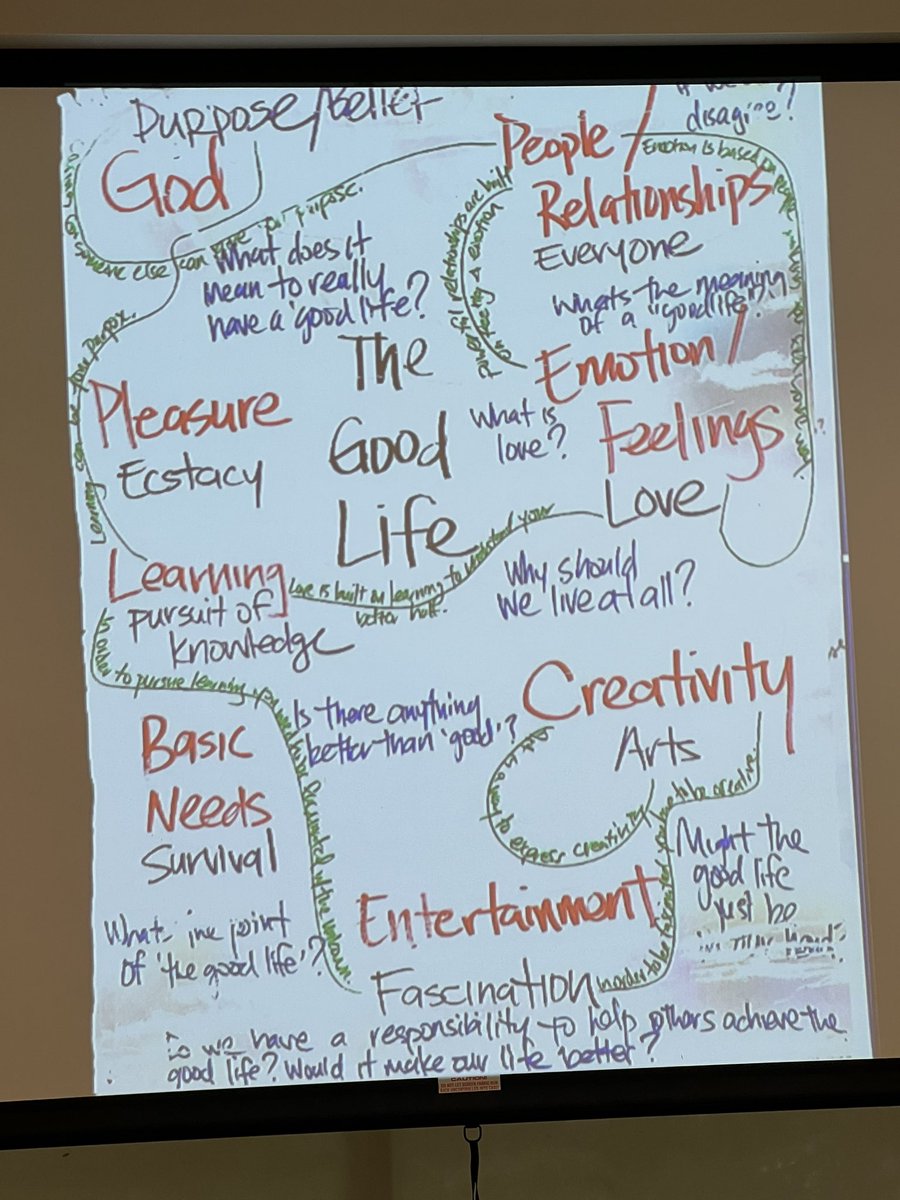 Purpose/Belief
God
disagree!
People/
Relationships
Everyone
Emotion is based on people
someone else can give you purpose.
What does it
mean to really
have a 'good life'?
relationships are built
on feeling & emotion
Whats the meaning
of a "good life"?
The
Good
Life
Emotion/
Feelings
Love
What is
love?
Pleasure
Ecstacy
Learning can be your purpose.
Learning
pursuit of
knowledge
Love is built on learning to understand your
better half.
Why should
we live at all?
in order to pursue learning you need to be fascinated of the unknown.
Basic
Needs
Survival
Is there anything
better than 'good'?
Creativity
Arts
Art is a way to express creativity
in order to be fascinated you have to be creative.
Might the
good life
just be
Entertainment
Fascination
What's the point
of 'the good life'?
Do we have a responsibility to help others achieve the
good life? Would it make our life better?
CAUTION!